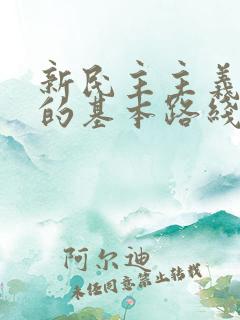 新民主主義
的基本路綫
阿尔迪
未经同意禁止转载